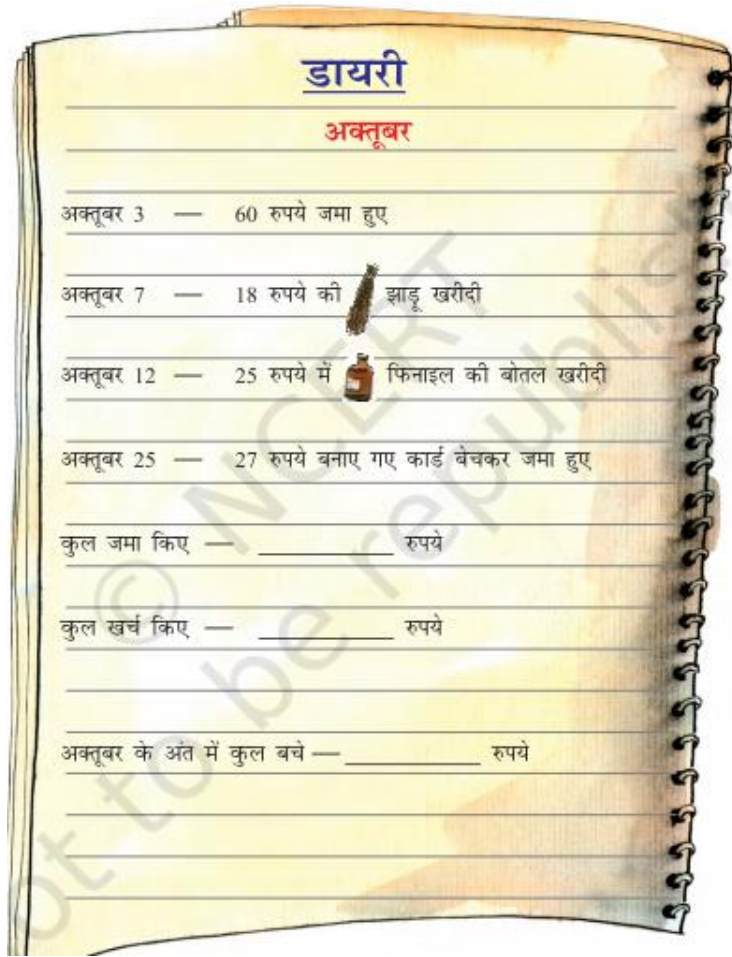 डायरी
अक्तूबर
अक्तूबर 3 — 60 रुपये जमा हुए
अक्तूबर 7 — 18 रुपये की झाड़ू खरीदी
अक्तूबर 12 — 25 रुपये में फिनाइल की बोतल खरीदी
अक्तूबर 25 — 27 रुपये बनाए गए कार्ड बेचकर जमा हुए
कुल जमा किए — __________ रुपये
कुल खर्च किए — __________ रुपये
अक्तूबर के अंत में कुल बचे — __________ रुपये
© NCERT
not to be republish